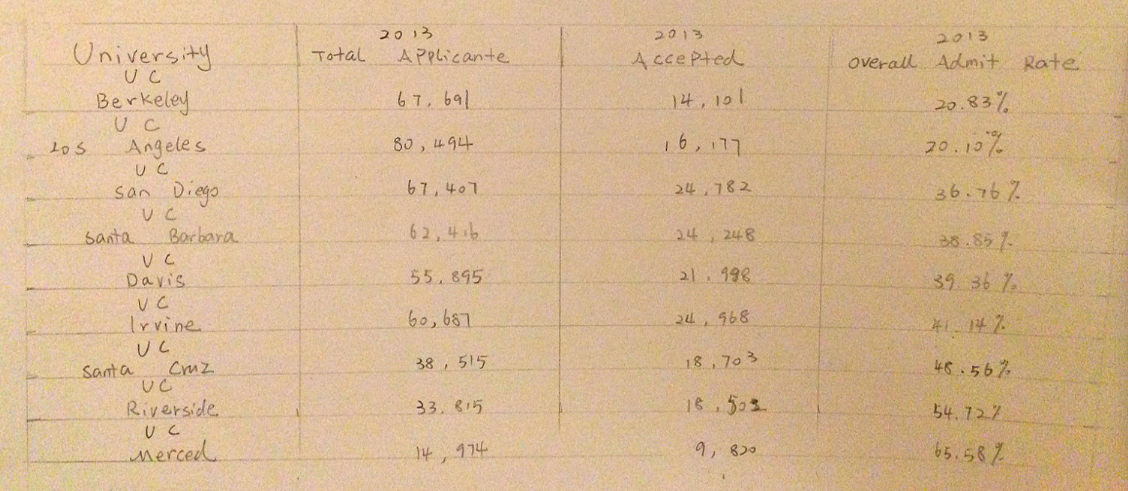 2013 2013 2013
University Total Applicante Accepted Overall Admit Rate
UC
Berkeley 67,691 14,101 20.83%
UC
Los Angeles 80,494 16,177 20.10%
UC
San Diego 67,407 24,782 36.76%
UC
Santa Barbara 62,416 24,248 38.85%
UC
Davis 55,895 21,998 39.36%
UC
Irvine 60,687 24,968 41.14%
UC
Santa Cruz 38,515 18,703 48.56%
UC
Riverside 33,815 54.72%
UC
Merced 14,974 9,820 65.58%